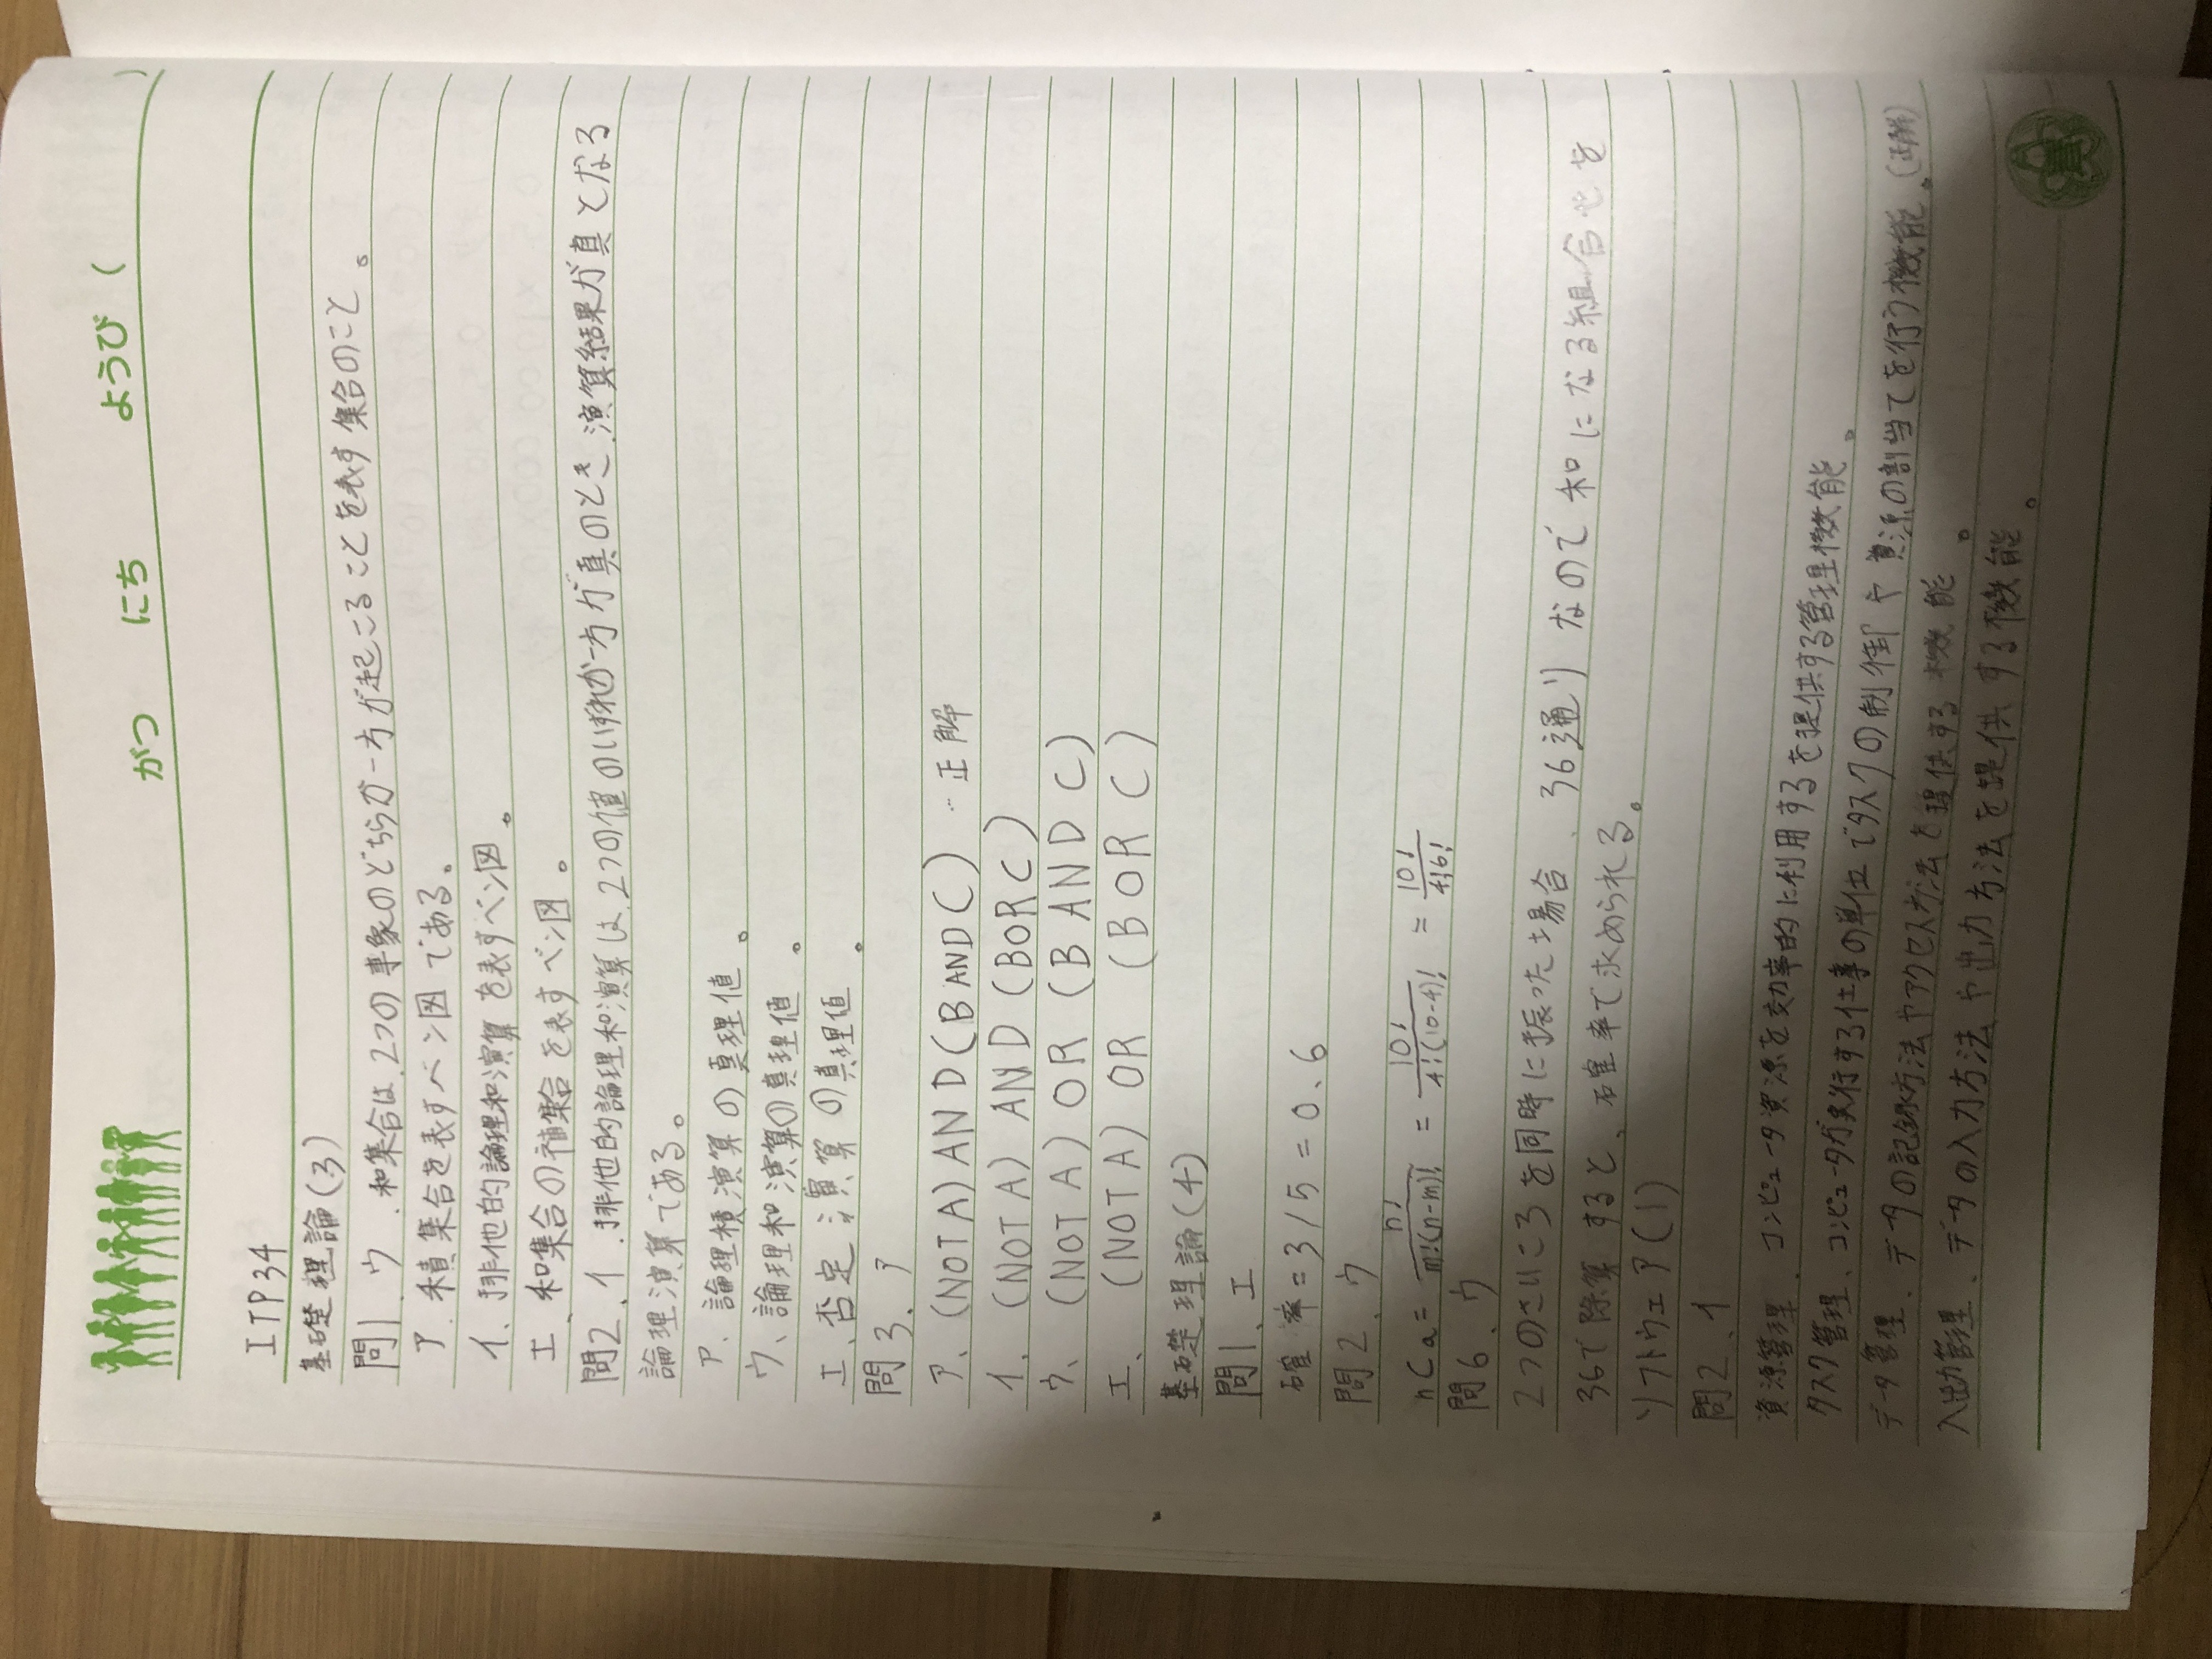 がつ にち ようび ( )
ITP34
基礎理論(3)
問1.ウ.和集合は、2つの事象のどちらか一方が起こることを表す集合のこと。
ア.積集合を表すベン図である。
イ、排他的論理和演算を表すベン図。
エ、和集合の補集合を表すベン図。
問2.イ.排他的論理和演算は、2つの値のいずれか一方が真のとき、演算結果が真となる
論理演算である。
ア.論理積演算の真理値。
ウ、論理和演算の真理値。
エ、否定演算の真理値。
問3.ア
ア、(NOT A) AND (B AND C) …正解
イ、(NOT A) AND (B OR C)
ウ、(NOT A) OR (B AND C)
エ、(NOT A) OR (B OR C)
基礎理論(4)
問1、エ
確率=3/5=0.6
問2、ウ
nCa= n!/m!(n-m)! = 10!/4!(10-4)! = 10!/4!6!
問6、ウ
2つのさいころを同時に振った場合、36通りなので和になる組合せを
36で除算すると、確率で求められる。
ソフトウェア(1)
問2、イ
資源管理、コンピュータ資源を効率的に利用するを提供する管理機能。
タスク管理、コンピュータが実行する仕事の単位でタスクの制御や資源の割当てを行う機能。(正解)
データ管理、データの記録方法やアクセス方法を提供する機能。
入出力管理、データの入力方法や出力方法を提供する機能。